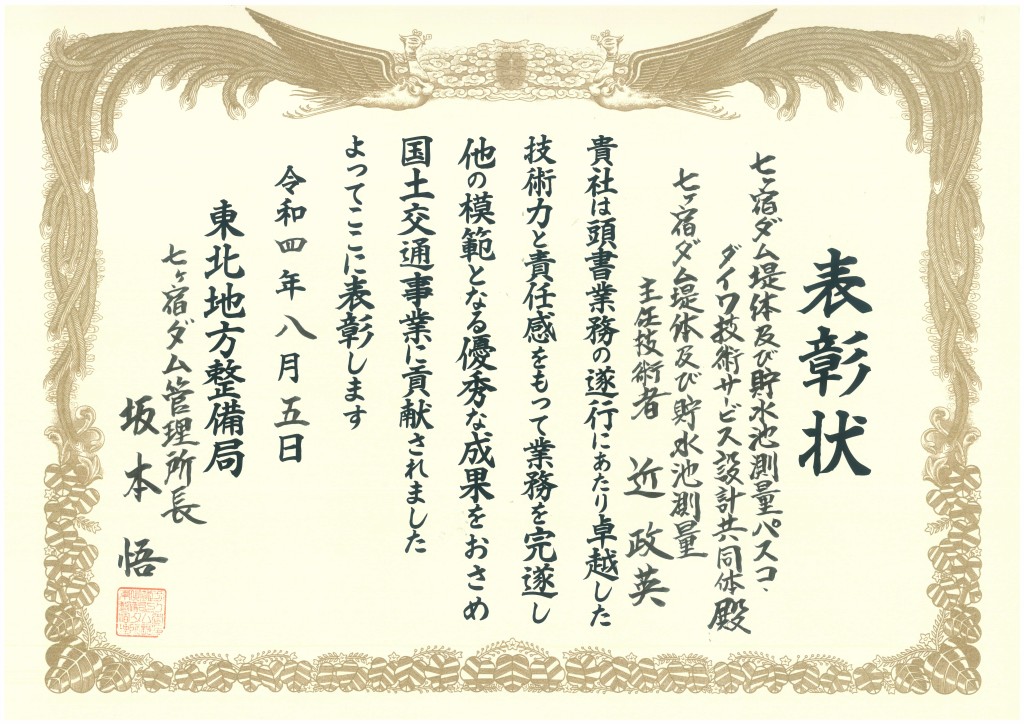 表彰状
七ヶ宿ダム堤体及び貯水池測量パスコ・
ダイワ技術サービス設計共同体殿
七ヶ宿ダム堤体及び貯水池測量
主任技術者 近政英
貴社は頭書業務の遂行にあたり卓越した
技術力と責任感をもって業務を完遂し
他の模範となる優秀な成果をおさめ
国土交通事業に貢献されました
よってここに表彰します
令和四年八月五日
東北地方整備局
七ヶ宿ダム管理所長
坂本悟